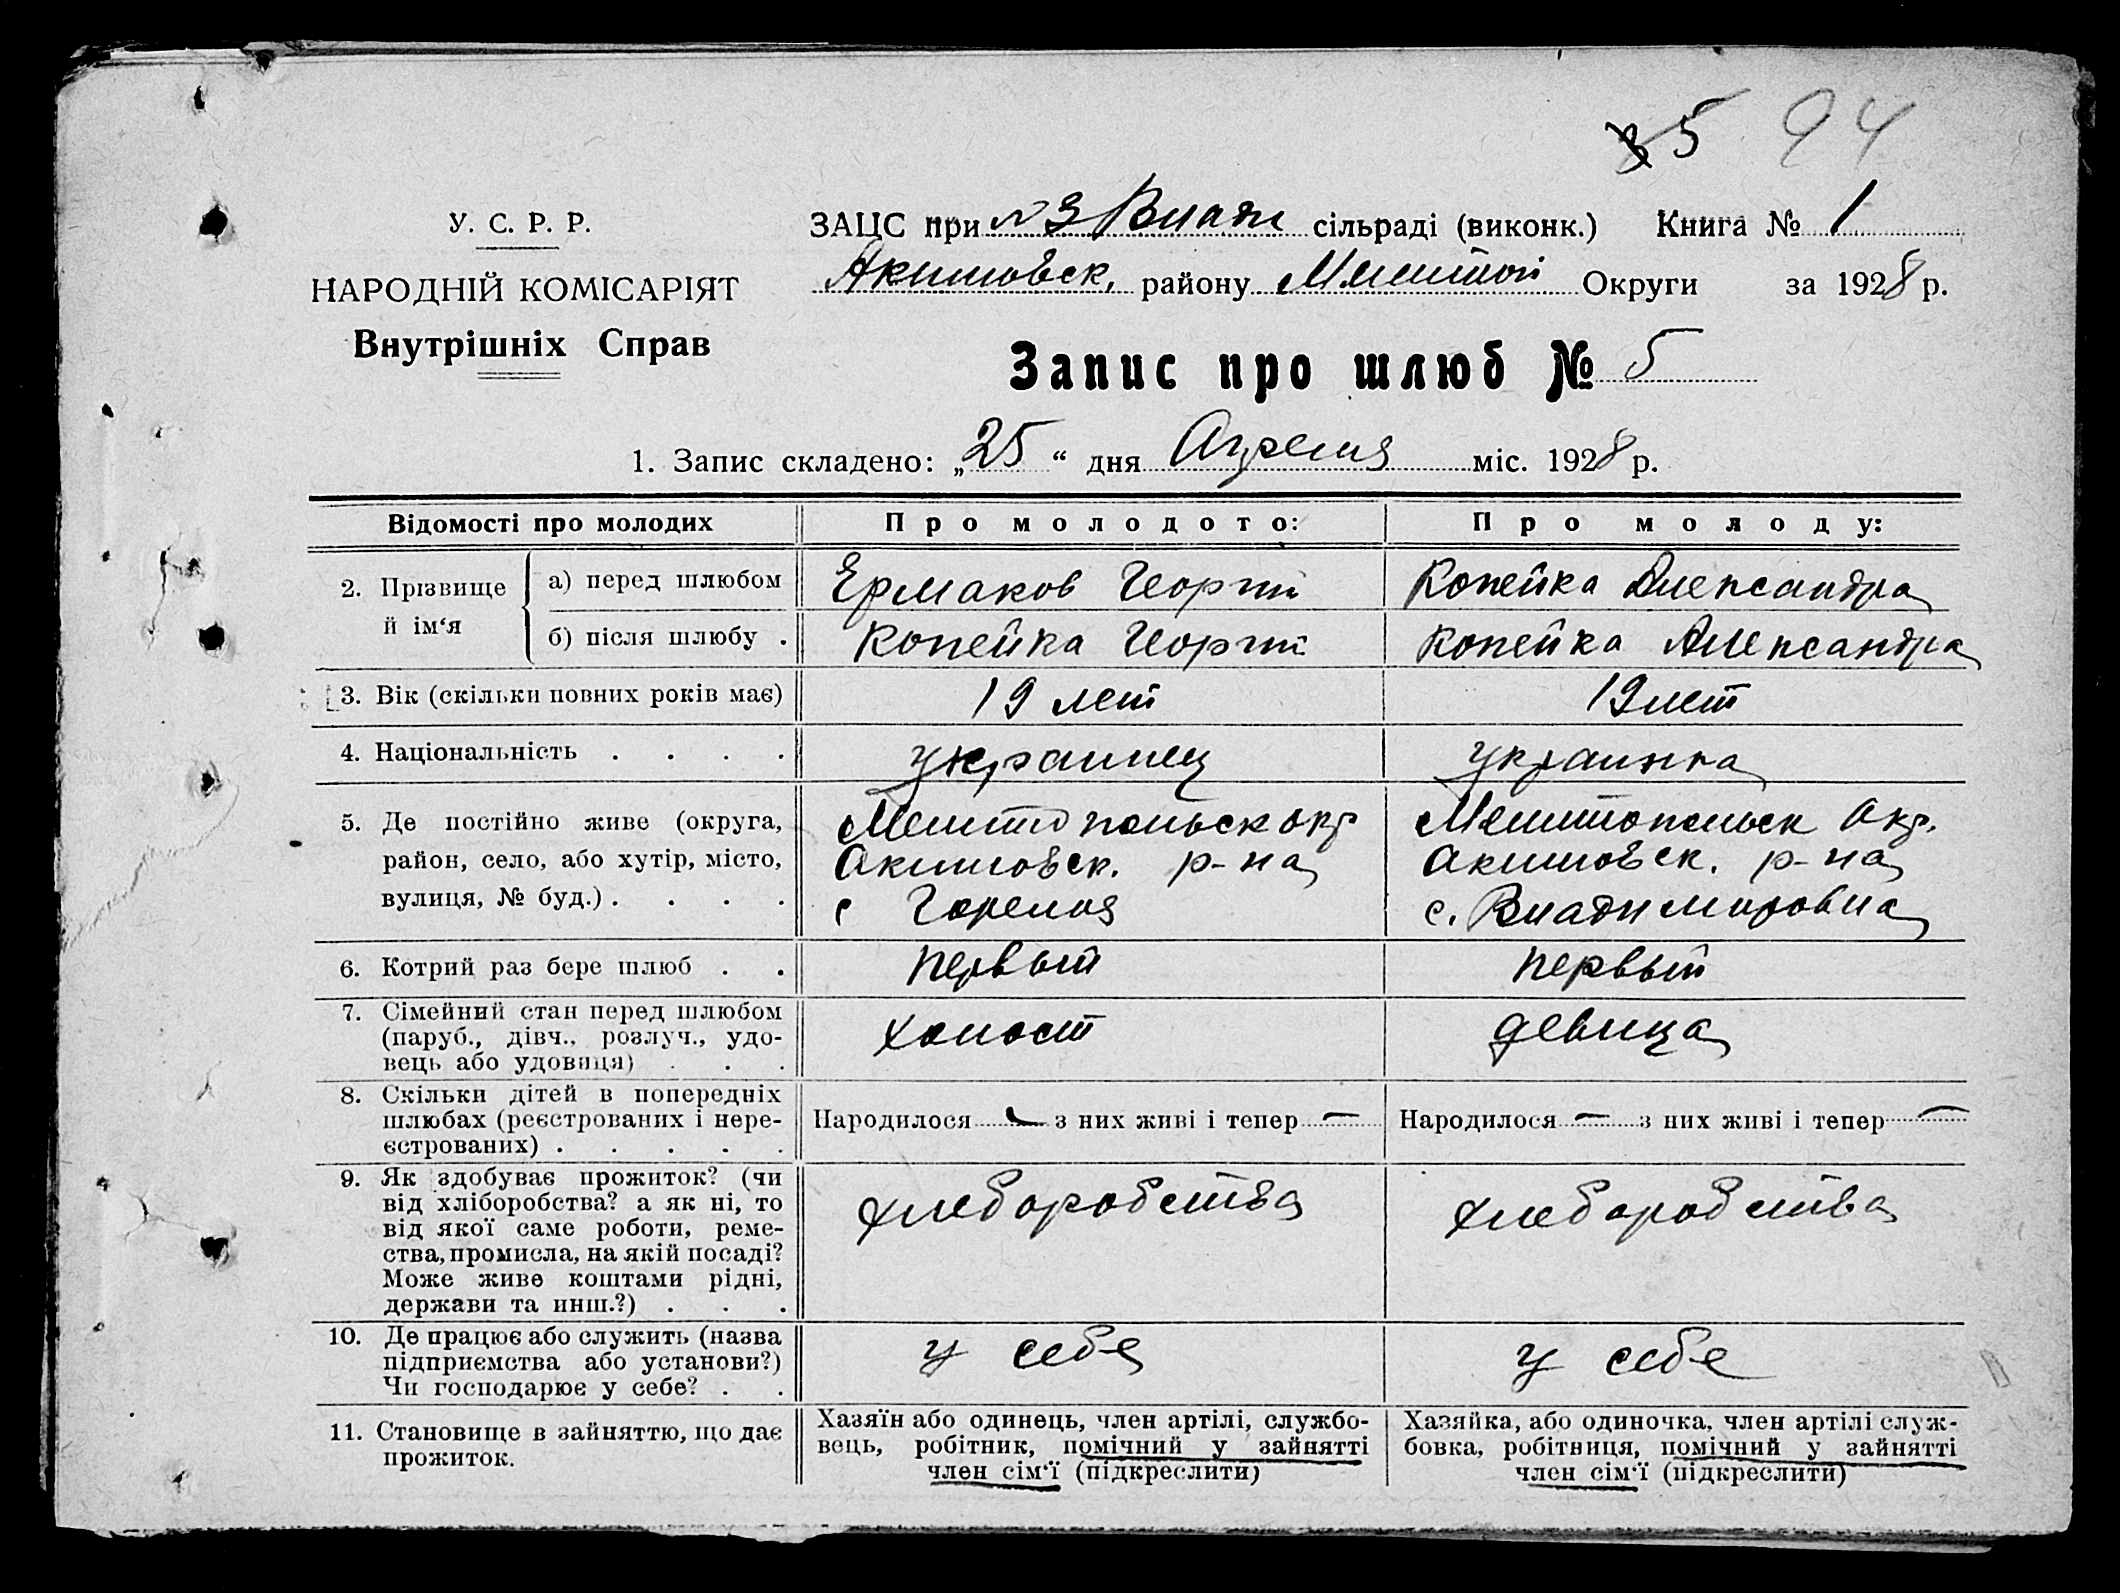 5 94
У. С. Р. Р.
НАРОДНІЙ КОМІСАРІЯТ
Внутрішніх Справ
ЗАЦС при №3 Влади сільраді (виконк.) Книга № 1
Акимовск. району Мелитоп Округи за 1928 р.
Запис про шлюб № 5
1. Запис складено: „25“ дня Апреля міс. 1928 р.
Відомості про молодих Про молодого: Про молоду:
2. Прізвище й ім‘я
а) перед шлюбом Ермаков Георгий Копейка Александра
б) після шлюбу . Копейка Георгий Копейка Александра
3. Вік (скільки повних років має) 19 лет 19 лет
4. Національність . . . . украинец украинка
5. Де постійно живе (округа,
район, село, або хутір, місто,
вулиця, № буд.) . . . .
Мелитопольск окр
Акимовск. р-на
с Горелия
Мелитопольск Окр.
Акимовск. р-на
с. Владимировка
6. Котрий раз бере шлюб . . первый первый
7. Сімейний стан перед шлюбом
(паруб., дівч., розлуч., удо-
вець або удовиця) . . .
холост девица
8. Скільки дітей в попередніх
шлюбах (реєстрованих і нере-
єстрованих) . . . . .
Народилося — з них живі і тепер — Народилося — з них живі і тепер —
9. Як здобуває прожиток? (чи
від хліборобства? а як ні, то
від якої саме роботи, реме-
ства, промисла, на якій посаді?
Може живе коштами рідні,
держави та инш.?) . . .
хлеборобства хлеборобства
10. Де працює або служить (назва
підприємства або установи?)
Чи господарює у себе? . .
у себя у себе
11. Становище в зайняттю, що дає
прожиток.
Хазяїн або одинець, член артілі, службо-
вець, робітник, помічний у зайнятті
член сім‘ї (підкреслити)
Хазяйка, або одиночка, член артілі служ-
бовка, робітниця, помічний у зайнятті
член сім‘ї (підкреслити)